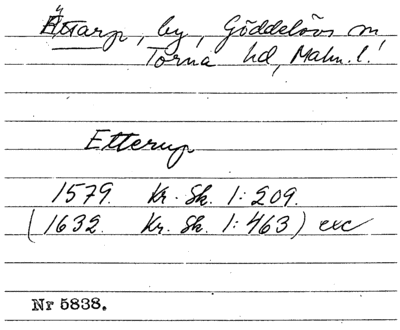 Ättarp, by, Göddelövs sn
Torna hd, Malm. l.
Etterup
1579. Kr. Sk. 1: 209.
(1632. Kr. Sk. 1: 463) exc
Nr 5838.